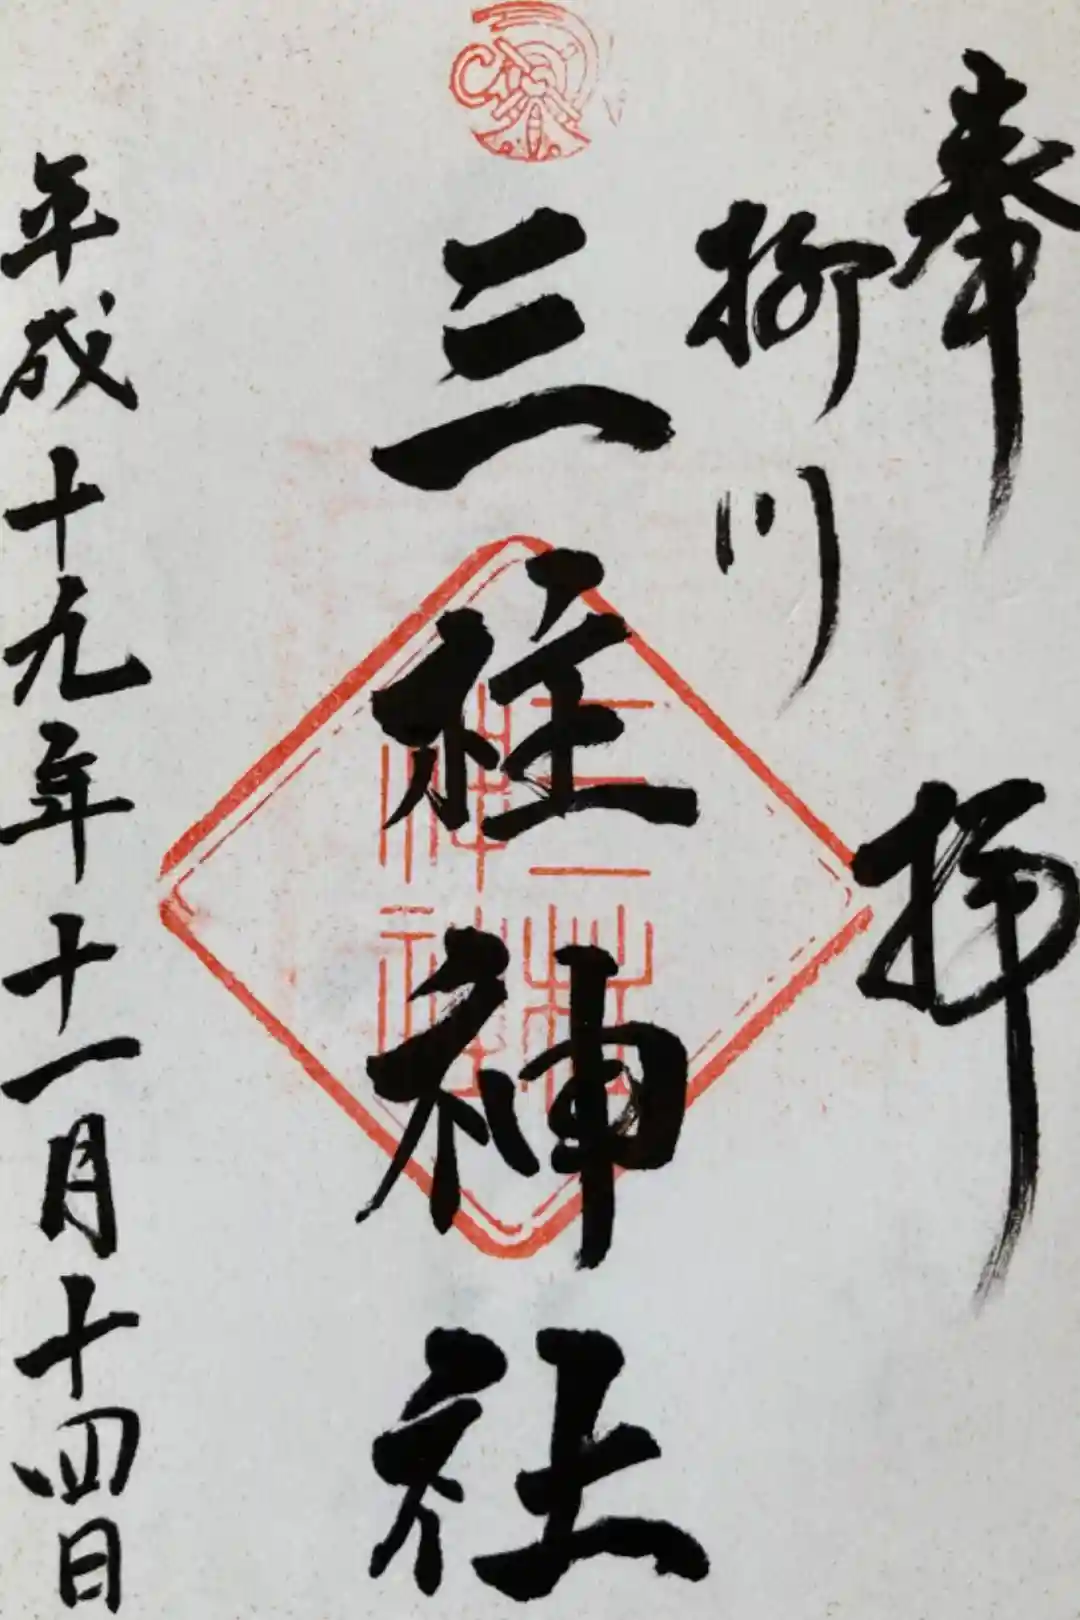 奉拝
柳川
三柱神社
平成十九年十一月十四日
三柱
神社